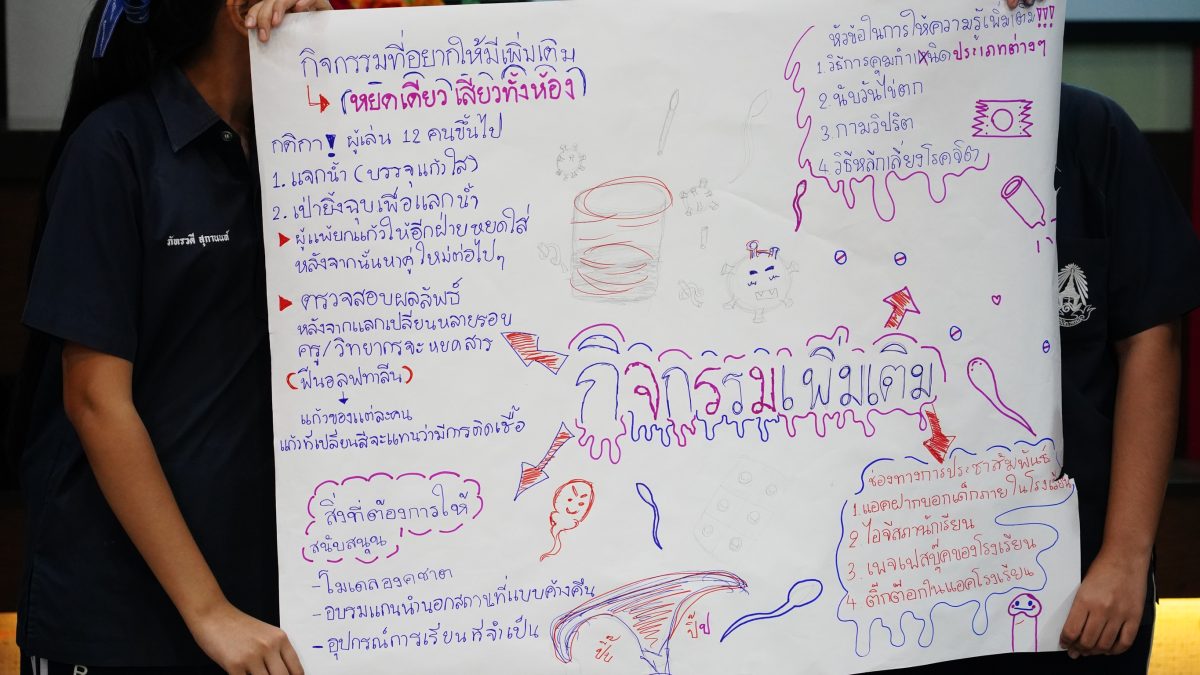 กิจกรรมที่อยากให้มีเพิ่มเติม
(หยดเดียวเสียวทั้งห้อง)
กติกา! ผู้เล่น 12 คนขึ้นไป
1. แจกน้ำ (บรรจุแก้วใส)
2. เป่ายิ้งฉุบเพื่อแลกน้ำ
ผู้แพ้ยกแก้วให้อีกฝ่ายหยดใส่
หลังจากนั้นหาคู่ใหม่ต่อไปๆ
ตรวจสอบผลลัพธ์
หลังจากแลกเปลี่ยนหลายรอบ
ครู/วิทยากรจะหยดสาร
(ฟีนอลฟทาลีน)
แก้วของแต่ละคน
แก้วที่เปลี่ยนสีจะแทนว่ามีการติดเชื้อ
สิ่งที่ต้องการให้
สนับสนุน
-โมเดลองคชาต
-อบรมแกนนำนอกสถานที่แบบค้างคืน
-อุปกรณ์การเรียนที่จำเป็น
กิจกรรมเพิ่มเติม
หัวข้อในการให้ความรู้เพิ่มเติม!!!
1. วิธีการคุมกำเนิดประเภทต่างๆ
2. นับวันไข่ตก
3. กามวิปริต
4 วิธีหลีกเลี่ยงโรคจิต
ช่องทางการประชาสัมพันธ์
1. แอคฝากบอกเด็กภายในโรงเรียน
2 ไอจีสภานักเรียน
3. เพจเฟสบุ๊คของโรงเรียน
4 ติ๊กต๊อกในแอคโรงเรียน
ปี๊ป
ปี๊ป
ภัทรวดี สุกานนท์